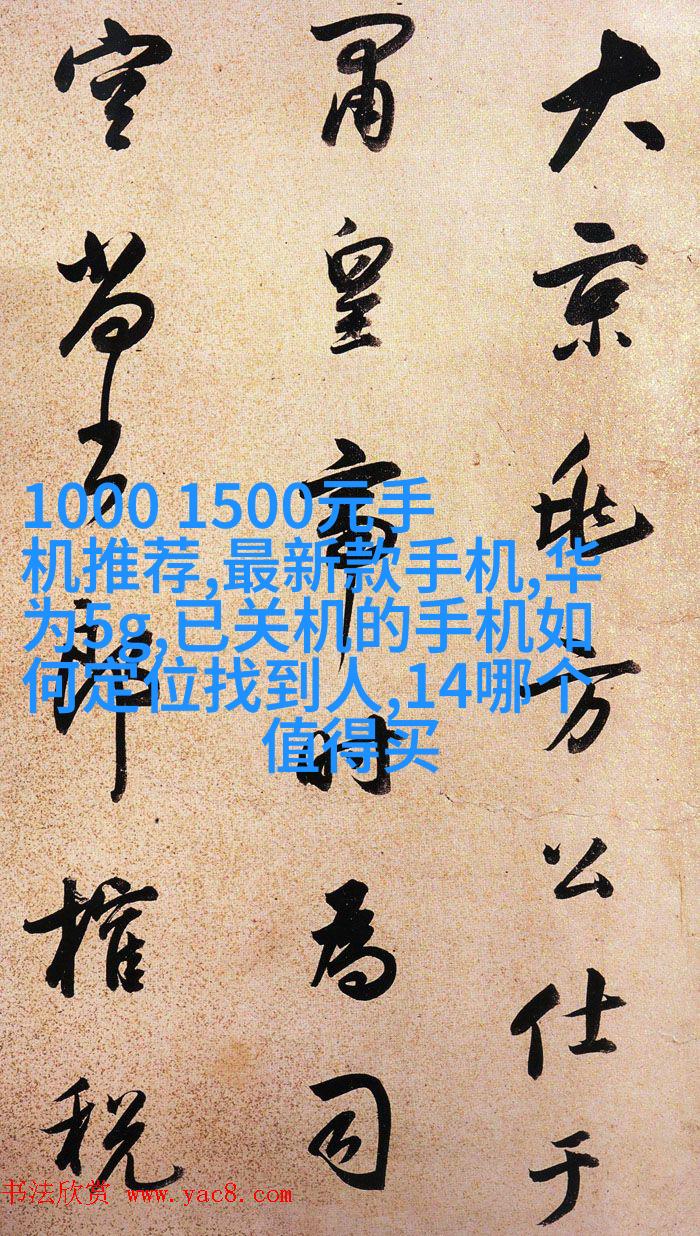 大京兆方公仕于
肅皇帝時為司
空尚書郎榷稅
1000 1500元手
机推荐,最新款手机,华
为5g,已关机的手机如
何定位找到人,14哪个
值得买
书法欣赏 www.yac8.com